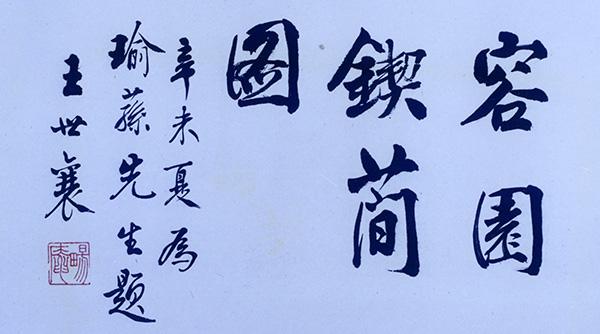 容園
鍥簡
圖
辛未夏為
瑜蓀先生題
王世襄
暢安